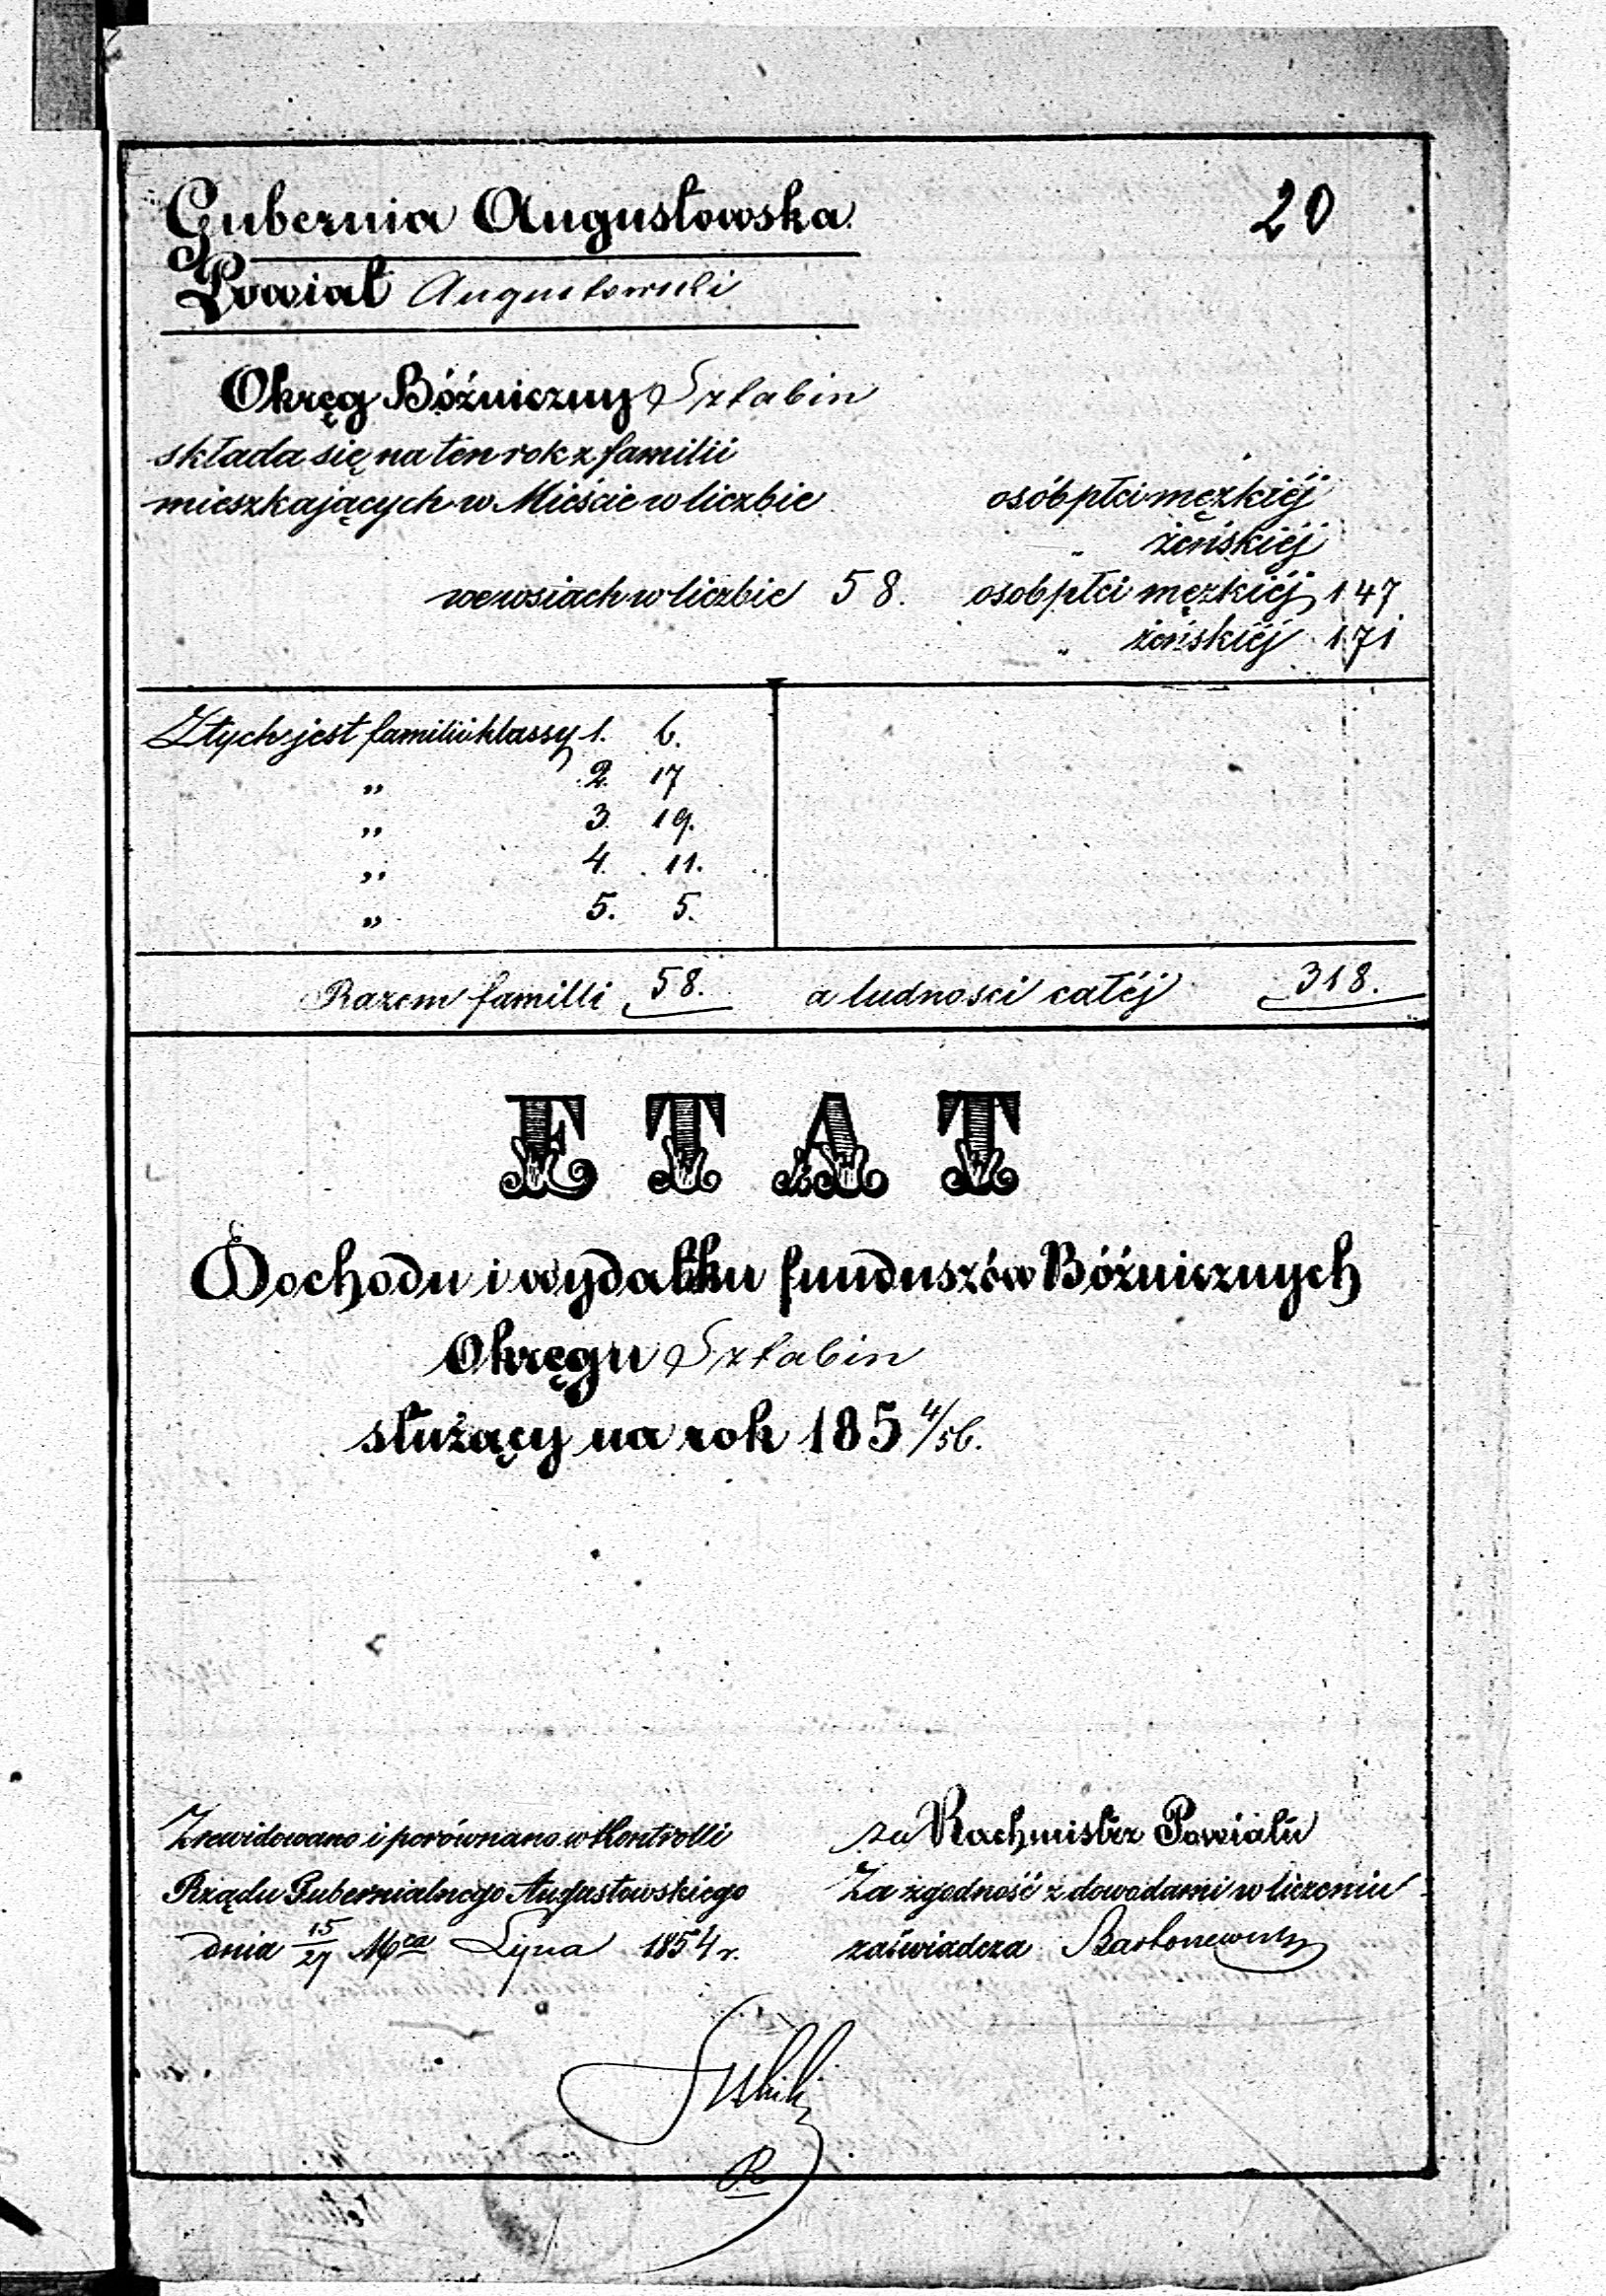 Gubernia Augustowska
20
Powiat Augustowski
Okręg Bóźniczny Sztabin
składa się na ten rok z familii
mieszkających w Mieście w liczbie osób płci męzkiéj
„ żeńskiéj
we wsiach w liczbie 58. osob płci męzkiéj 147
„ żeńskiéj 171
Z tych jest familii klassy 1. 6.
„ 2. 17
„ 3. 19.
„ 4. 11.
„ 5. 5.
Razem familli 58. a ludnosci całéj 318.
ETAT
Dochodu i wydatku funduszów Bóźnicznych
Okręgu Sztabin
służący na rok 185 4/56.
Zrewidowano i porównano w Kontrolli
Rządu Gubernialnego Augustowskiego
dnia 15/27 Mca Lipca 1854 r.
za Rachmistrz Powiatu
Za zgodność z dowodami w liczeniu
zaświadcza